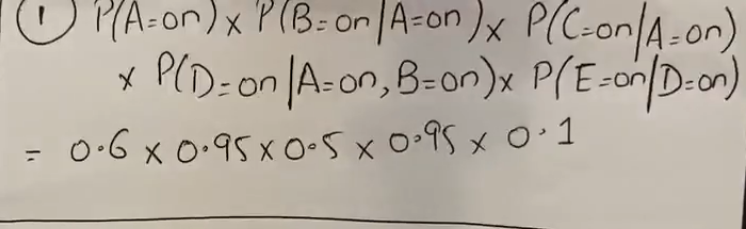 ① P(A=on) x P(B=on|A=on) x P(C=on|A=on)
x P(D=on|A=on, B=on) x P(E=on|D=on)
= 0.6 x 0.95 x 0.5 x 0.95 x 0.1